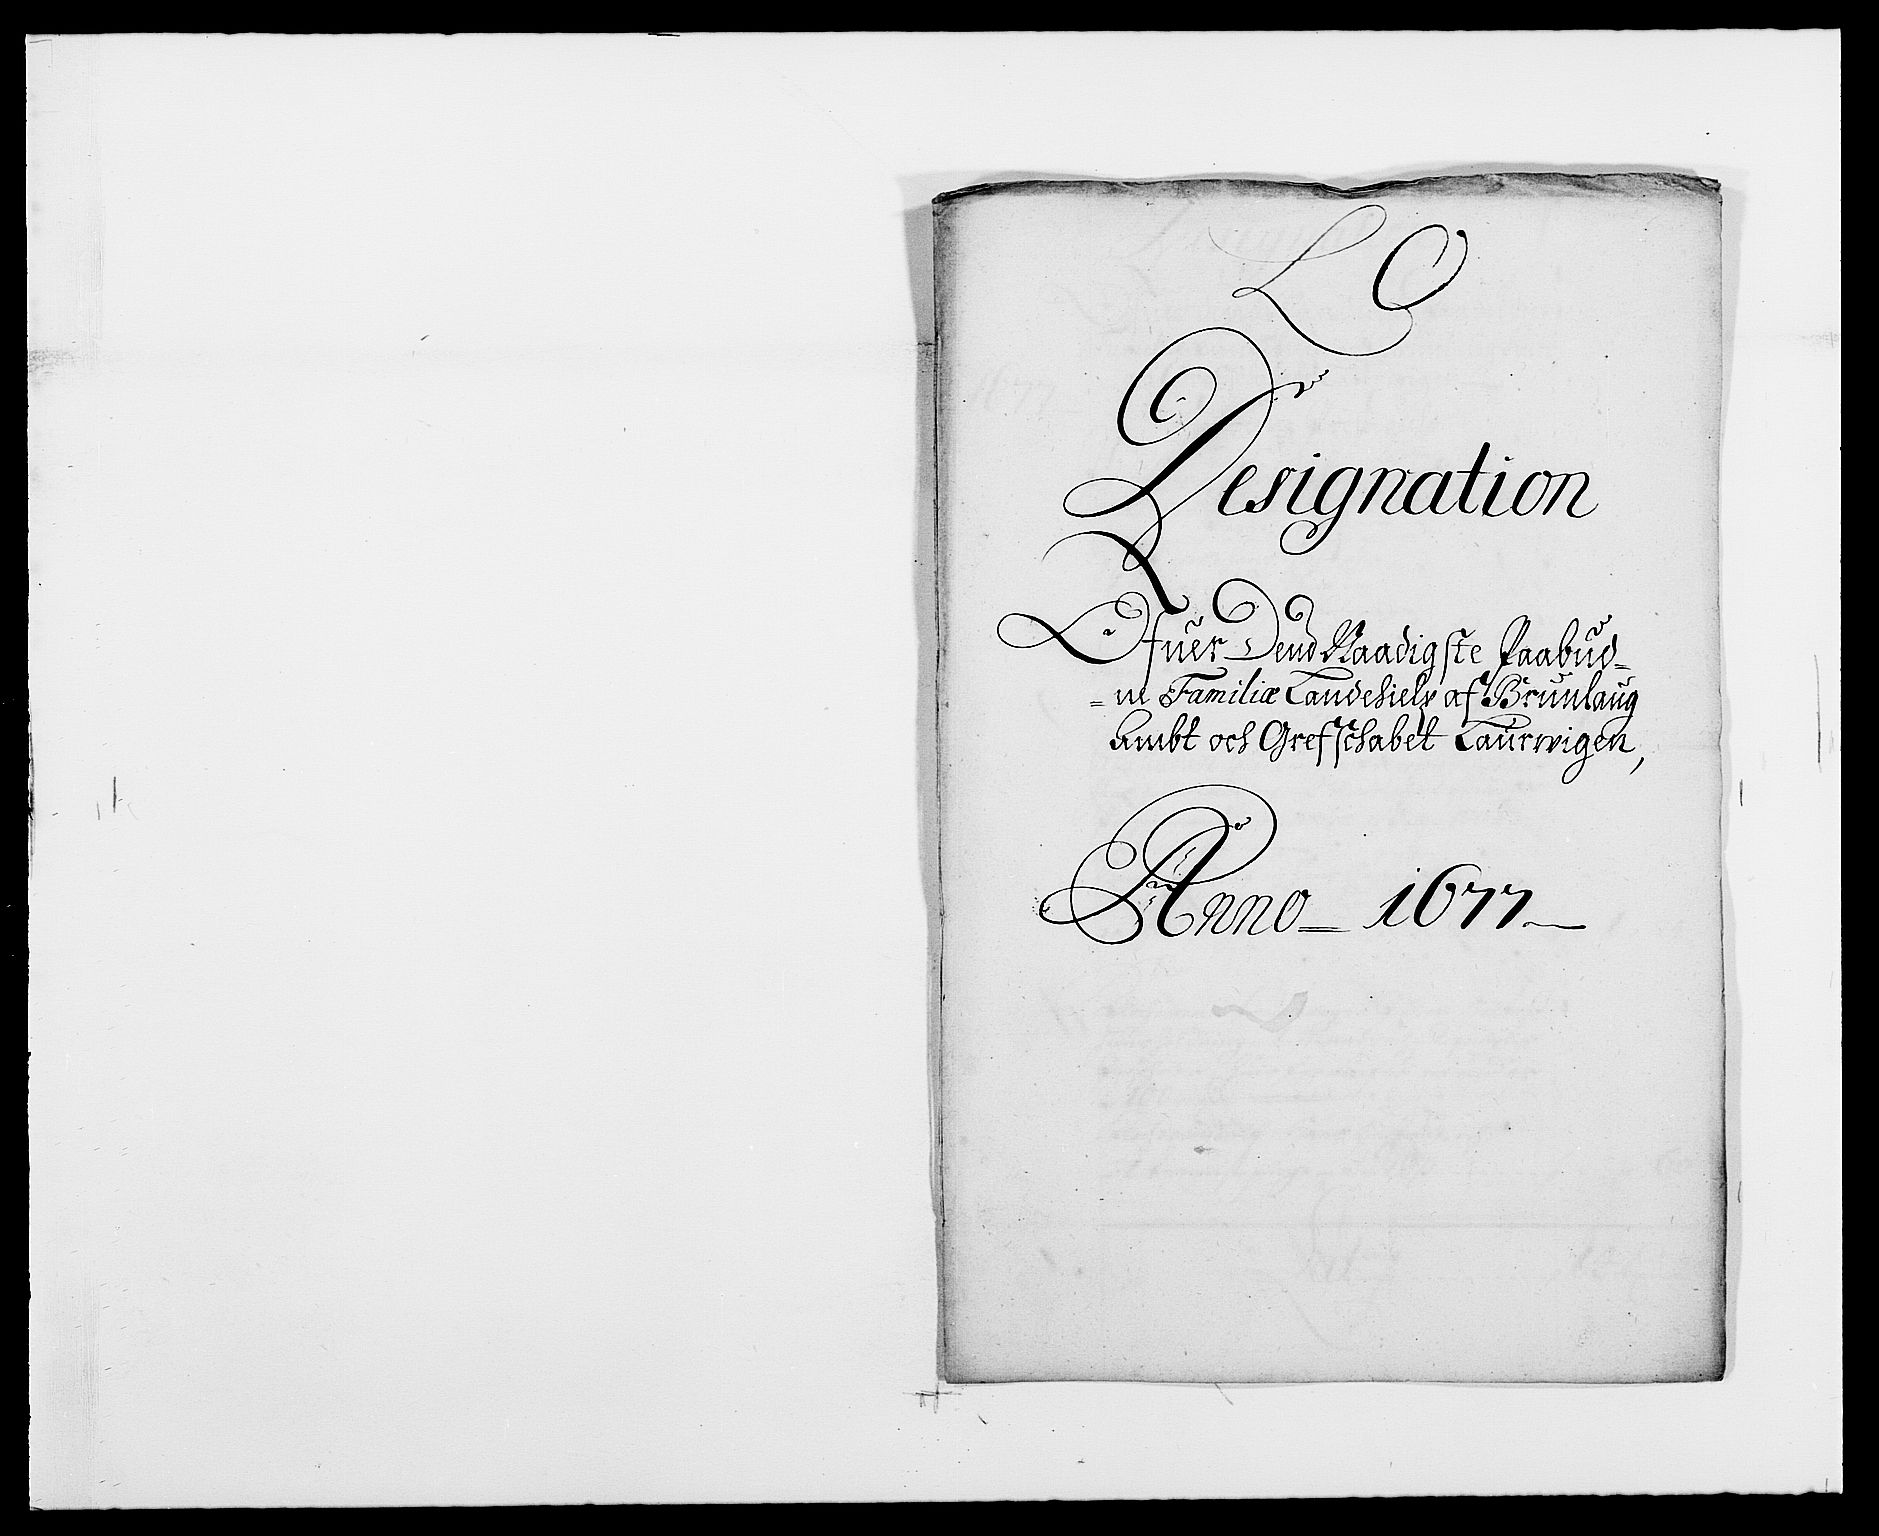 L O
Designation
Ofuer Dend Naadigste Paabud-
=ne Familiæ Landehielp af Brunlaug
Ambt och Grefschabet Laurwigen,
Anno 1677